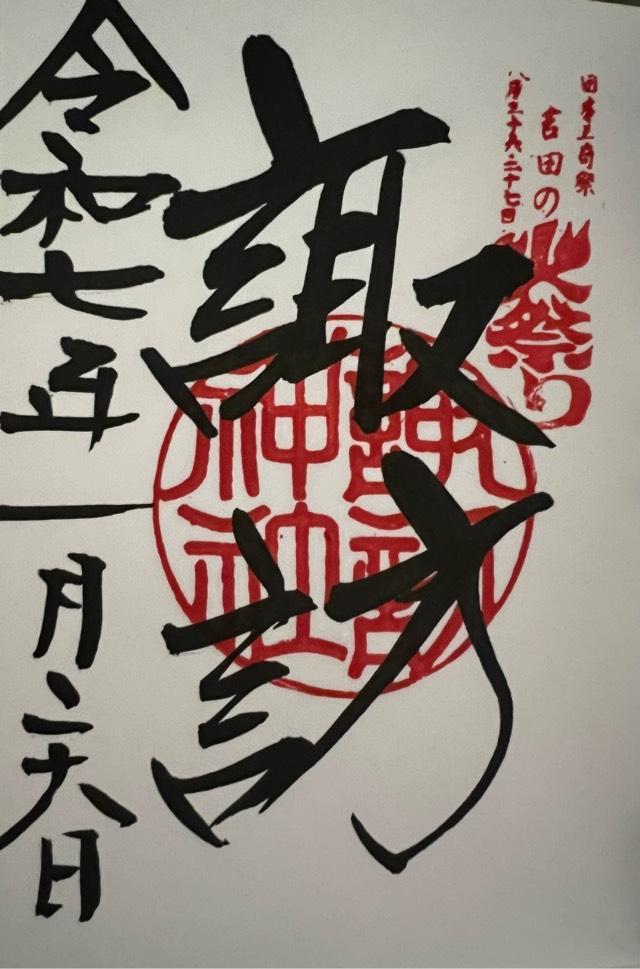 日本三奇祭
吉田の火祭り
八月二十六・二十七日
諏訪
諏訪
神社
令和七年一月二 日